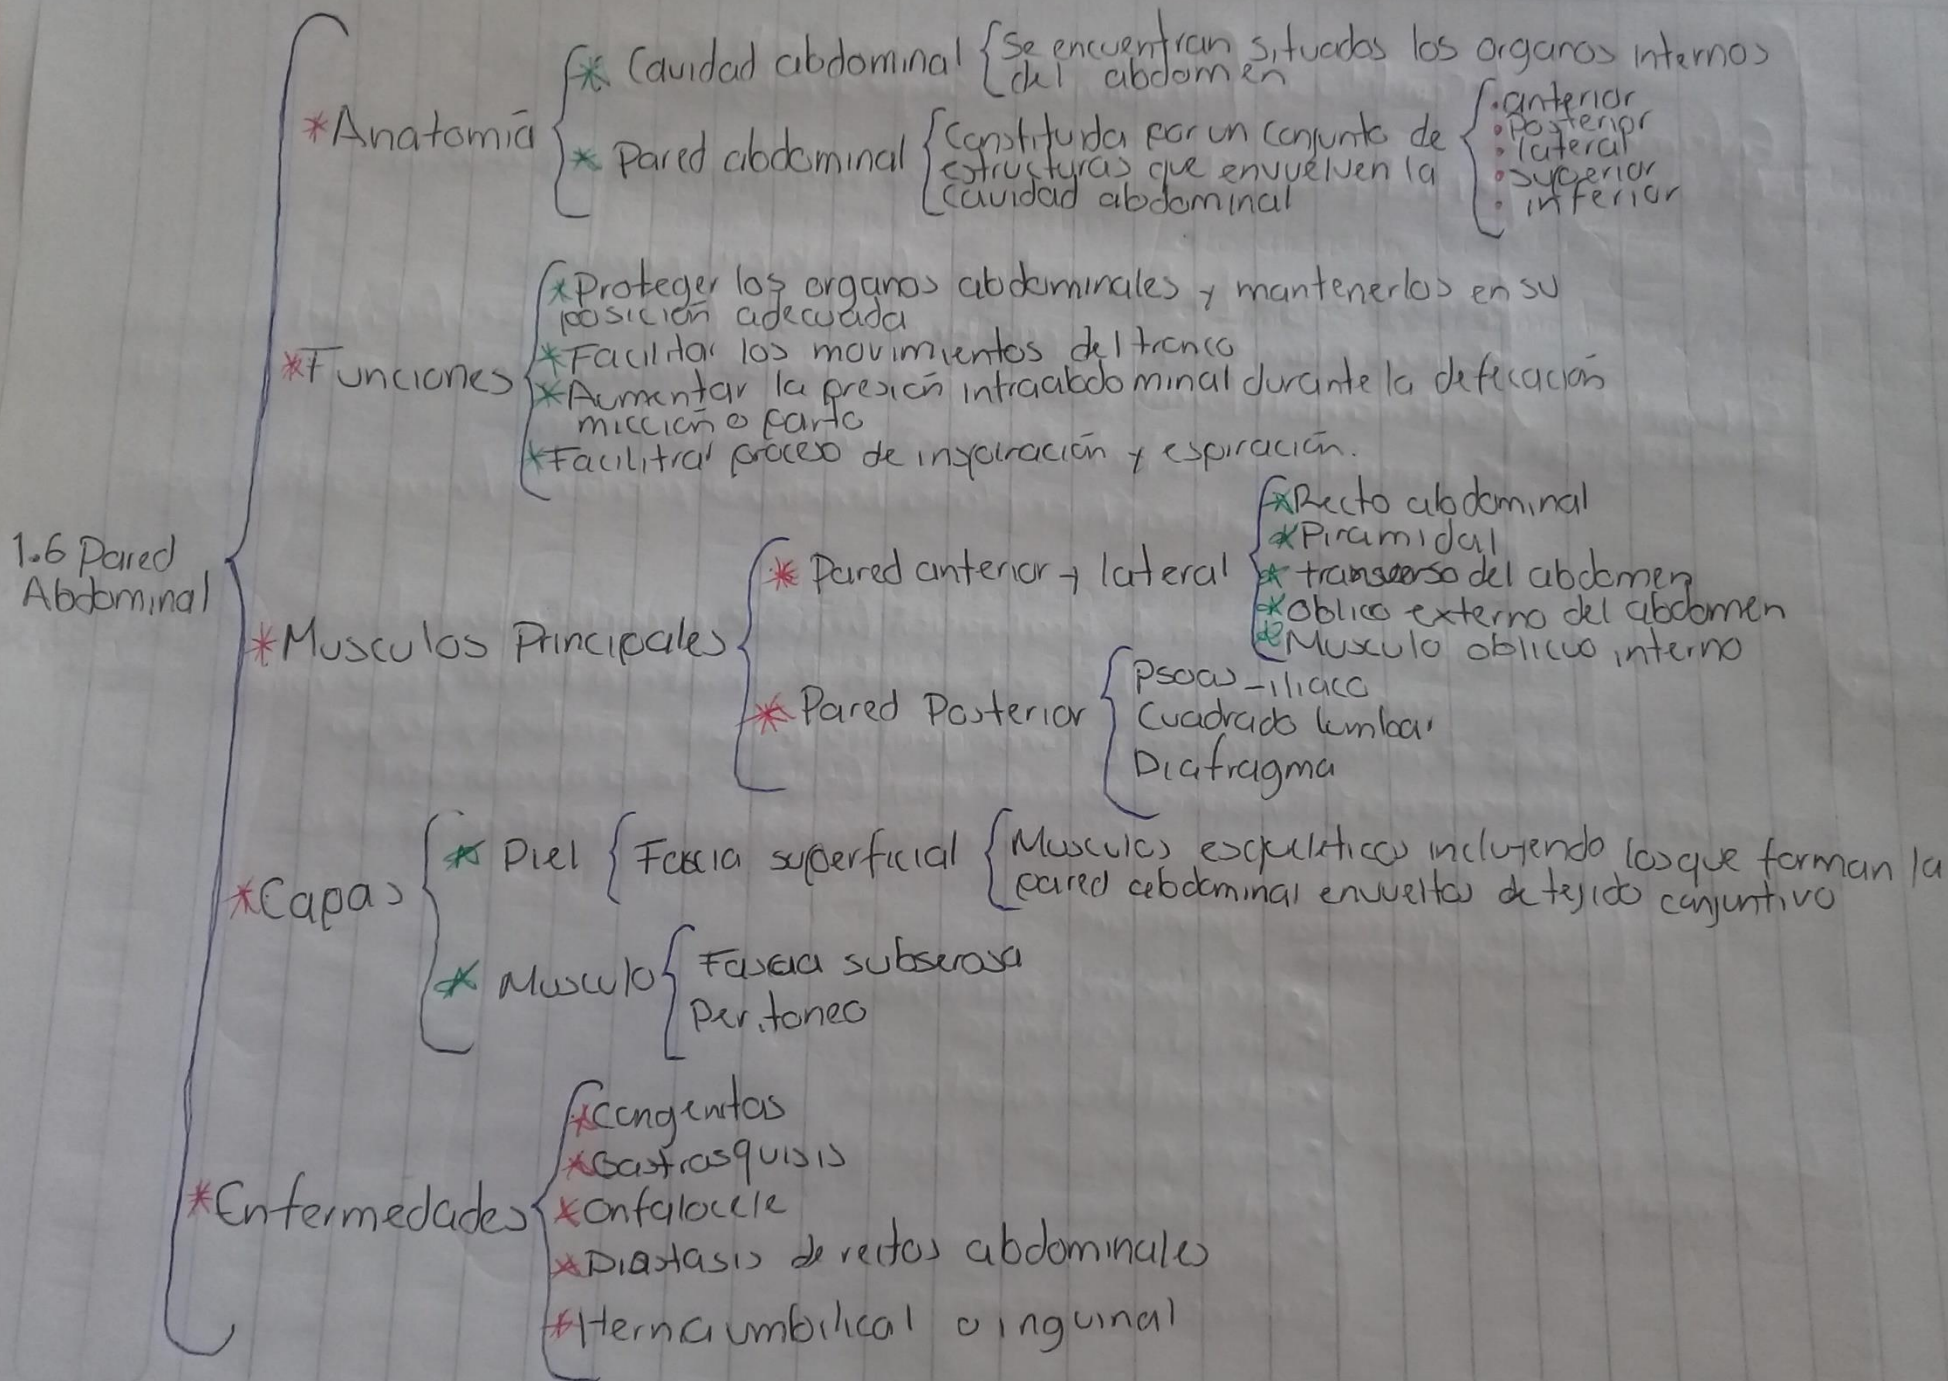 * Anatomía
* Cavidad abdominal
Se encuentran situados los organos internos
del abdomen
* Pared abdominal
Constituida por un conjunto de
estructuras que envuelven la
cavidad abdominal
• anterior
• Posterior
• lateral
• superior
• inferior
* Funciones
* Proteger los organos abdominales y mantenerlos en su
posición adecuada
* Facilitar los movimientos del tronco
* Aumentar la presión intraabdominal durante la defecación
micción o parto
* Facilitrar proceso de inspiración y espiración.
1.6 Pared
Abdominal
* Musculos Principales
* Pared anterior y lateral
* Recto abdominal
* Piramidal
* transverso del abdomen
* Oblico externo del abdomen
* Musculo oblicuo interno
* Pared Posterior
Psoas-iliaco
Cuadrado lumbar
Diafragma
* Capas
* Piel
Fascia superficial
Musculos esqueleticos incluyendo los que forman la
pared abdominal envueltos de tejido conjuntivo
* Musculo
Fascia subserosa
Peritoneo
* Enfermedades
* Congenitas
* Gastrosquisis
* Onfalocele
* Diastasis de rectos abdominales
* Hernia umbilical o inguinal